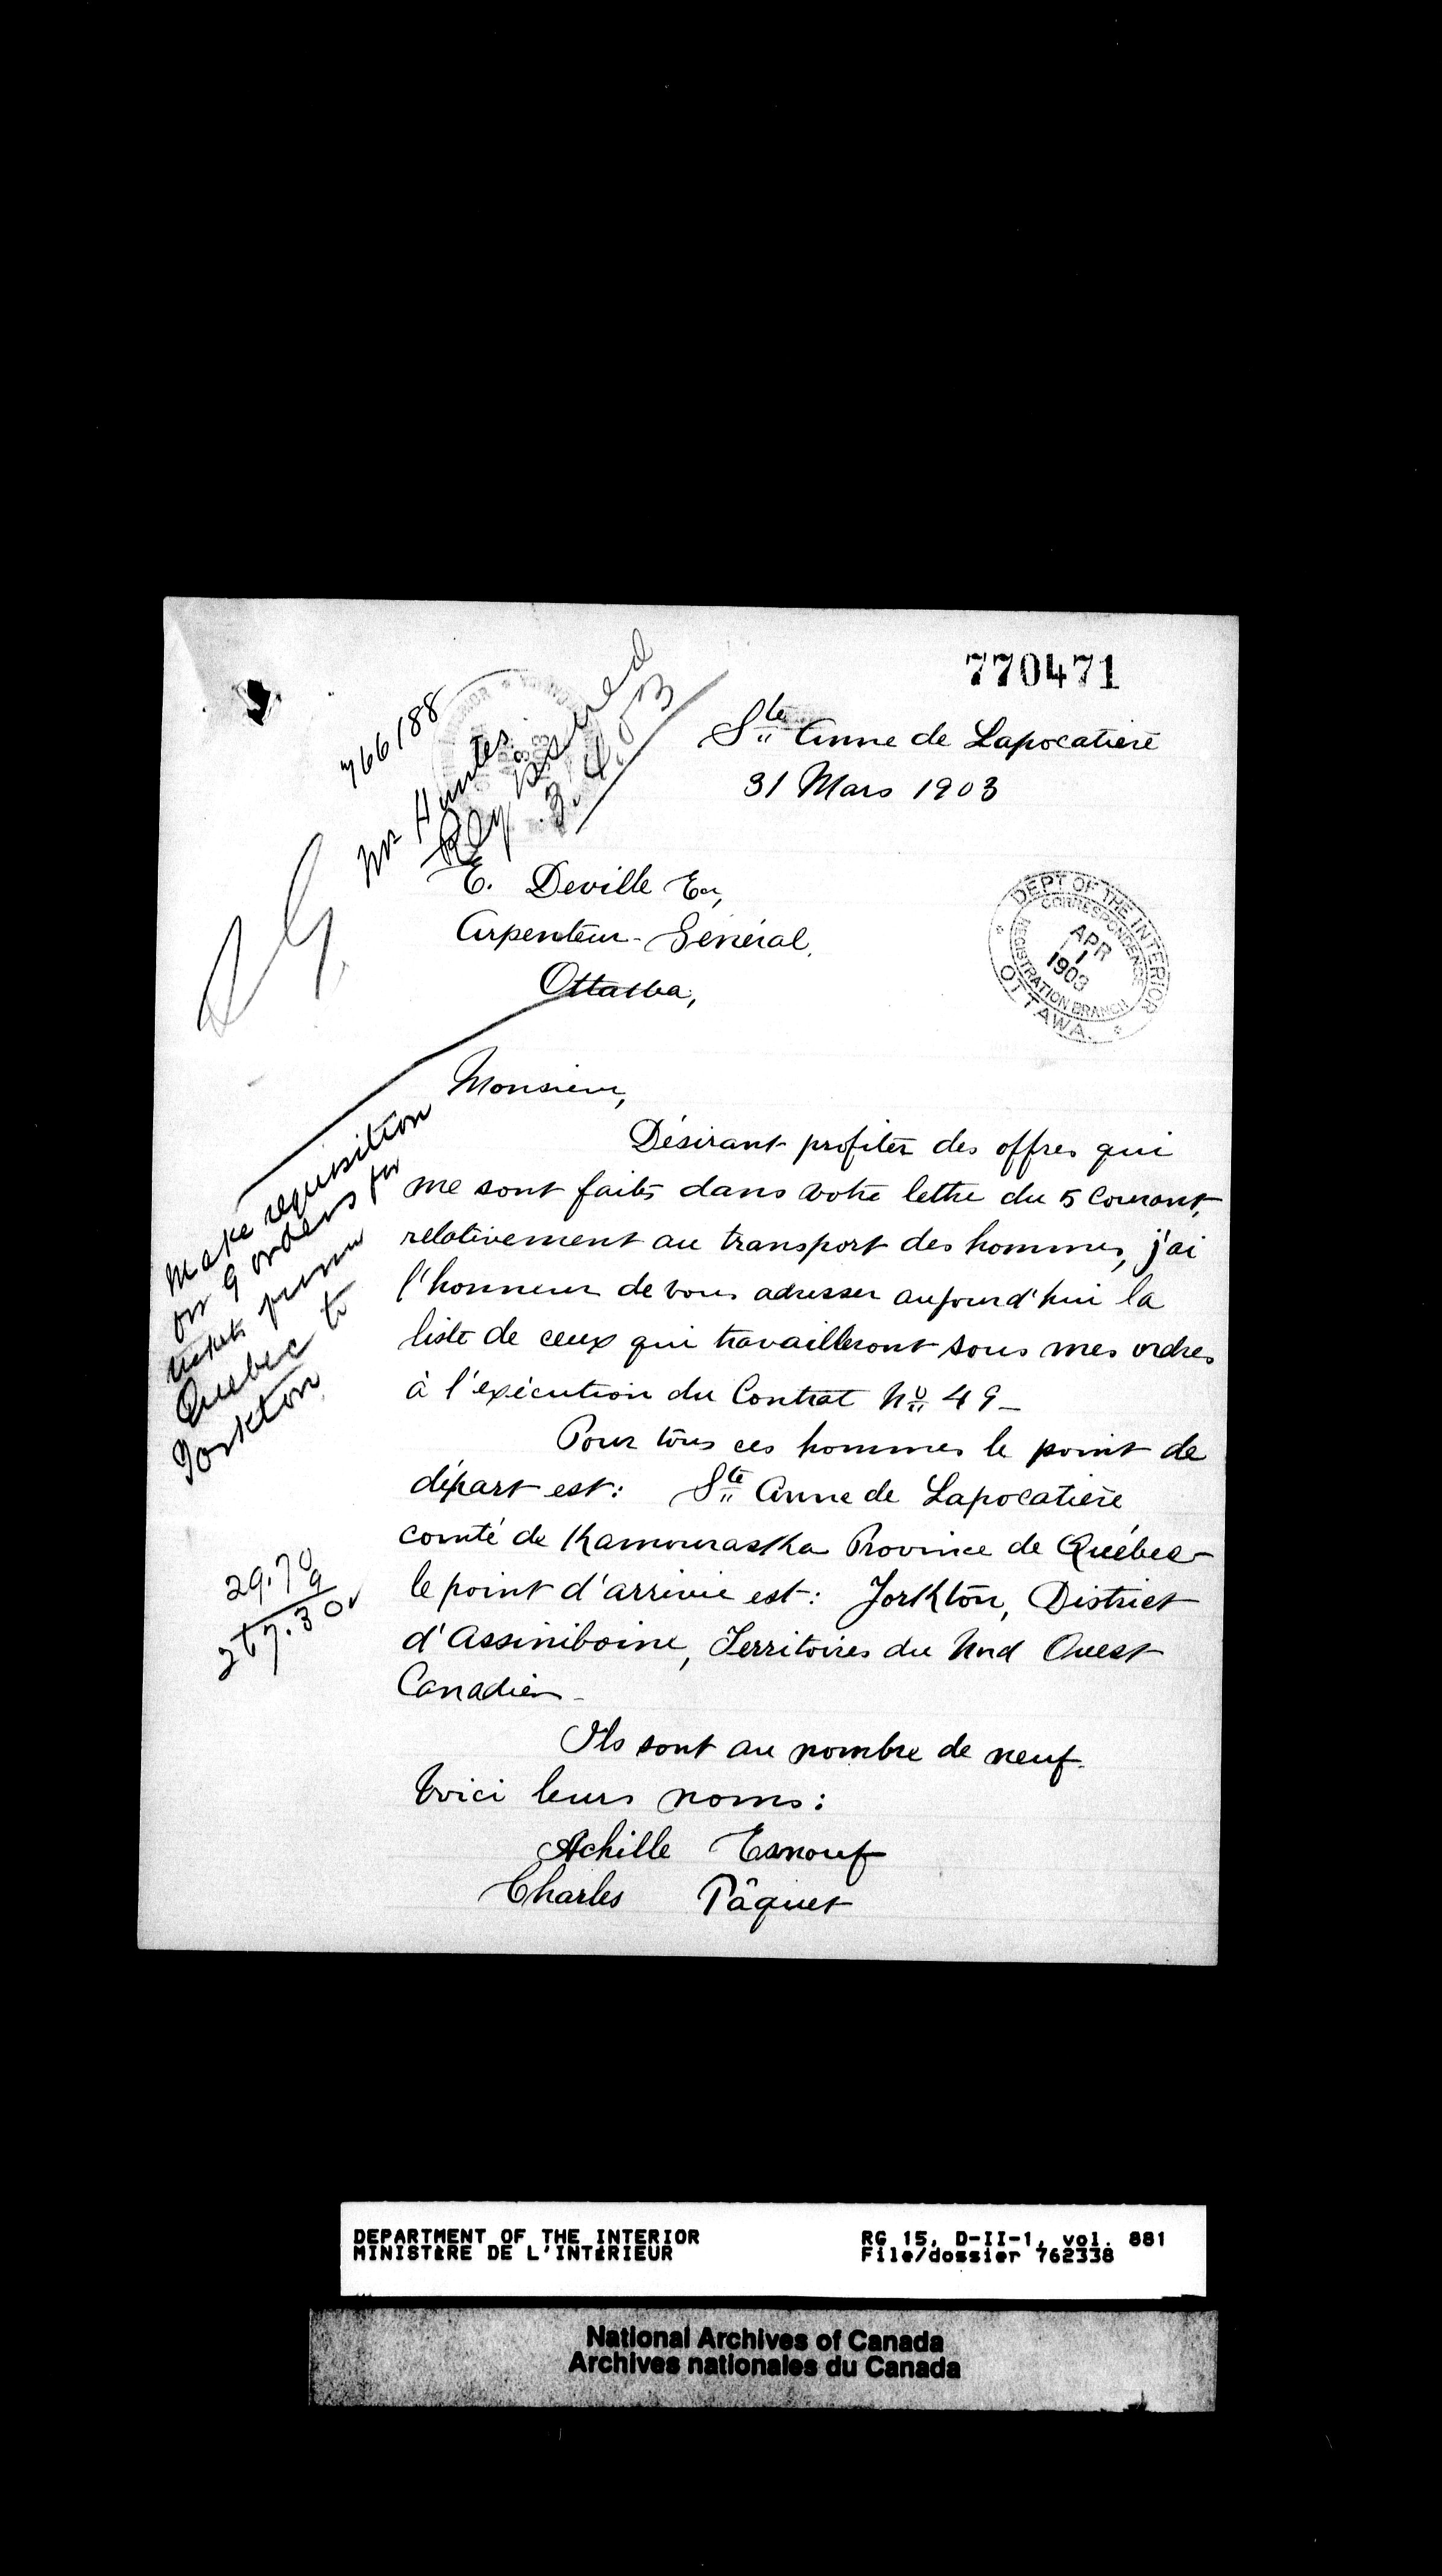 770471
Ste Anne de Lapocatière
31 Mars 1903
766188
Mr Hunter
3.4.03
E. Deville Er,
Arpenteur-Général,
Ottawa,
DEPT OF THE INTERIOR
CORRESPONDENCE
APR
1
1903
REGISTRATION BRANCH
OTTAWA.
Monsieur,
Désirant profiter des offres qui
me sont faites dans votre lettre du 5 Courant,
relativement au transport des hommes, j'ai
l'honneur de vous adresser aujourd'hui la
liste de ceux qui travailleront sous mes ordres
à l'exécution du Contrat No 49_
Pour tous ces hommes le point de
départ est: Ste Anne de Lapocatière
comté de Kamouraska Province de Québec-
le point d'arrivée est: Yorkton, District
d'Assiniboine, Territoires du Nord Ouest
Canadien_
Ils sont au nombre de neuf.
Voici leurs noms:
Achille Esnouf
Charles Pâquet
Make requisition
for 9 orders for
tickets from
Quebec to
Yorkton
29.70
9
267.30
DEPARTMENT OF THE INTERIOR
MINISTÈRE DE L'INTÉRIEUR
RG 15, D-II-1, vol. 881
File/dossier 762338
National Archives of Canada
Archives nationales du Canada